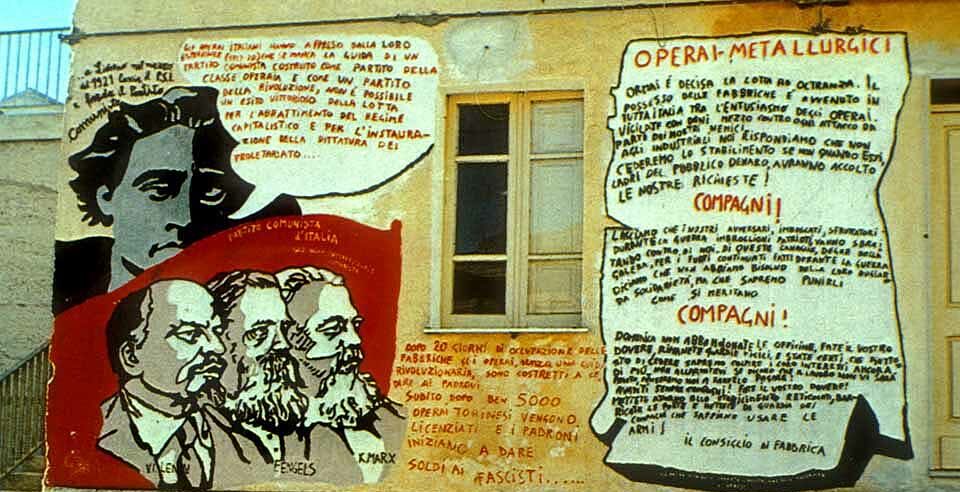 a Livorno nel marzo
del 1921 lascia il P.S.I.
e fonda il Partito
Comunista
GLI OPERAI ITALIANI HANNO APPRESO DALLA LORO
ESPERIENZA CHE SE MANCA LA GUIDA DI UN
PARTITO COMUNISTA COSTRUITO COME PARTITO DELLA
CLASSE OPERAIA E COME UN PARTITO
DELLA RIVOLUZIONE, NON È POSSIBILE
UN ESITO VITTORIOSO DELLA LOTTA
PER L'ABBATTIMENTO DEL REGIME
CAPITALISTICO E PER L'INSTAURA-
ZIONE DELLA DITTATURA DEL
PROLETARIATO....
PARTITO COMUNISTA
d'ITALIA
V. LENIN
F. ENGELS
K. MARX
DOPO 20 GIORNI DI OCCUPAZIONE DELLE
FABBRICHE GLI OPERAI, SENZA UNA GUIDA
RIVOLUZIONARIA, SONO COSTRETTI A CE
DERE AI PADRONI
SUBITO DOPO BEN 5000
OPERAI TORINESI VENGONO
LICENZIATI E I PADRONI
INIZIANO A DARE
SOLDI AI FASCISTI.....
OPERAI-METALLURGICI
ORMAI È DECISA LA LOTTA AD OLTRANZA. IL
POSSESSO DELLE FABBRICHE È AVVENUTO IN
TUTTA ITALIA TRA L'ENTUSIASMO DEGLI OPERAI.
VIGILATE CON OGNI MEZZO CONTRO OGNI ATTACCO DA
PARTE DEI NOSTRI NEMICI.
AGLI INDUSTRIALI NOI RISPONDIAMO CHE NON
CEDEREMO LO STABILIMENTO SE NON QUANDO ESSI,
LADRI DEL PUBBLICO DENARO, AVRANNO ACCOLTO
LE NOSTRE RICHIESTE!
COMPAGNI!
LASCIAMO CHE I NOSTRI AVVERSARI, IMBOSCATI, SFRUTTATORI
DURANTE LA GUERRA IMBROGLIONI PATRIOTI, VANNO SBRAI
TANDO CONTRO DI NOI. DI QUESTE CANAGLIE, DEGNE DELLA
GALERA, PER I FURTI CONTINUATI FATTI DURANTE LA GUERRA,
DICIAMO CHE NON ABBIAMO BISOGNO DELLA LORO
DA SOLIDARIETÀ, MA CHE SAPREMO PUNIRLI
COME SI MERITANO
COMPAGNI!
DOMENICA NON ABBANDONATE LE OFFICINE, FATE IL VOSTRO
DOVERE, E STATE CERTI, CHE
DI PIÙ, NON
FATE IL VOSTRO DOVERE!
METTETE STABILIMENTO
COMPAGNI CHE SAPPIANO USARE LE
ARMI!
IL CONSIGLIO DI FABBRICA